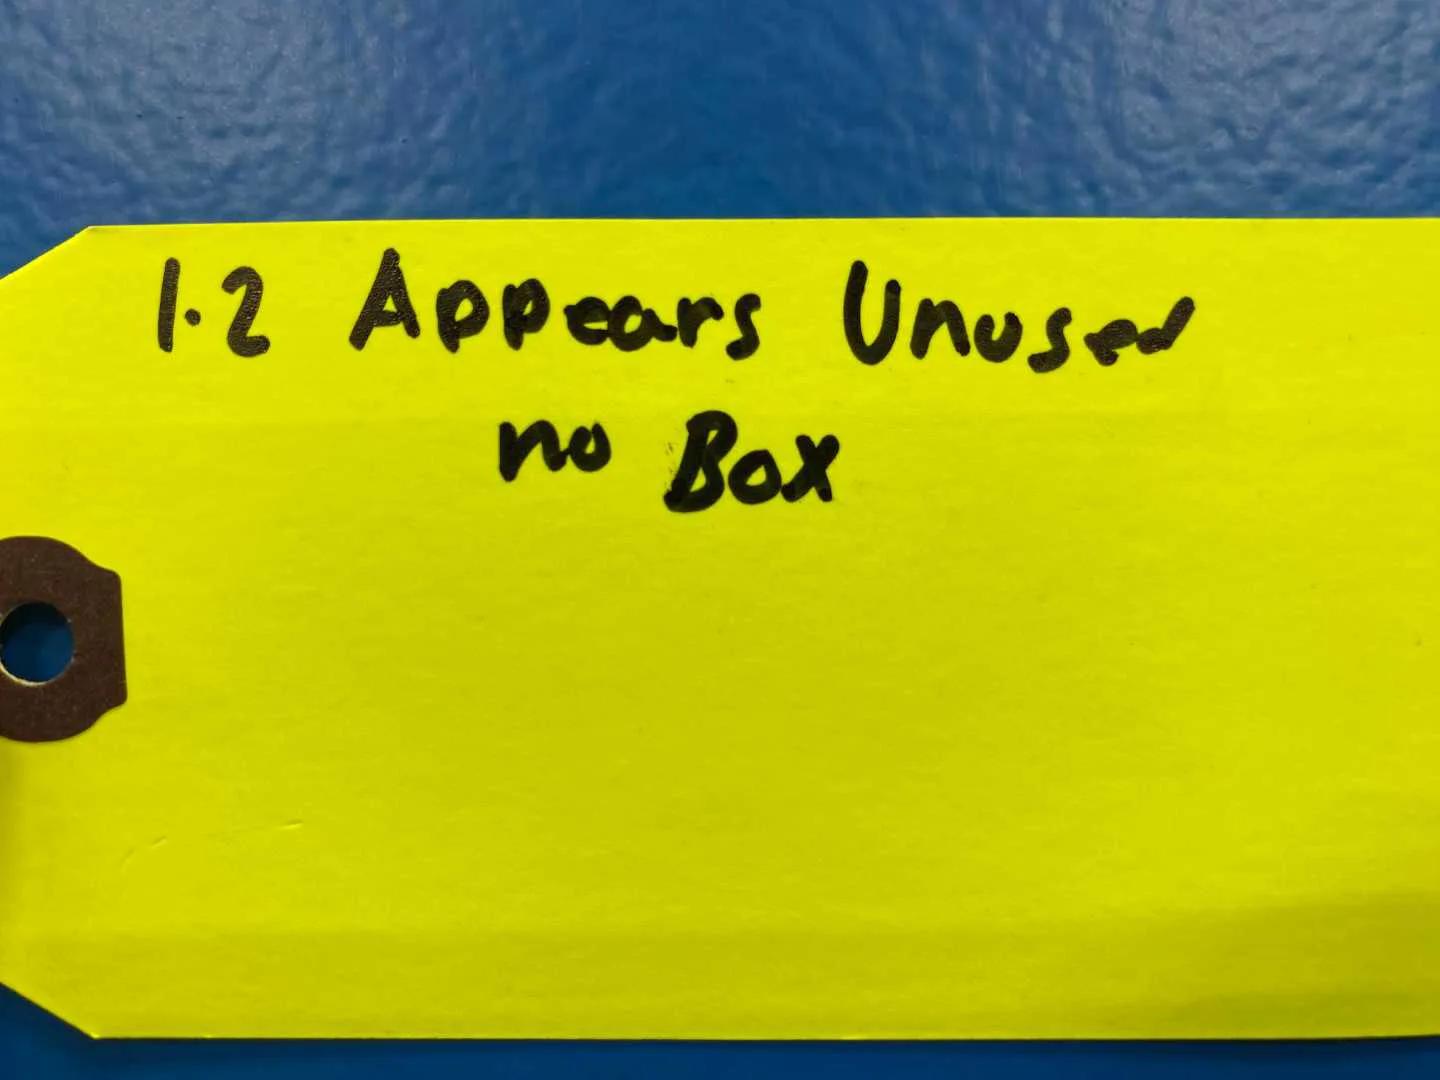 1.2 Appears Unused
no Box